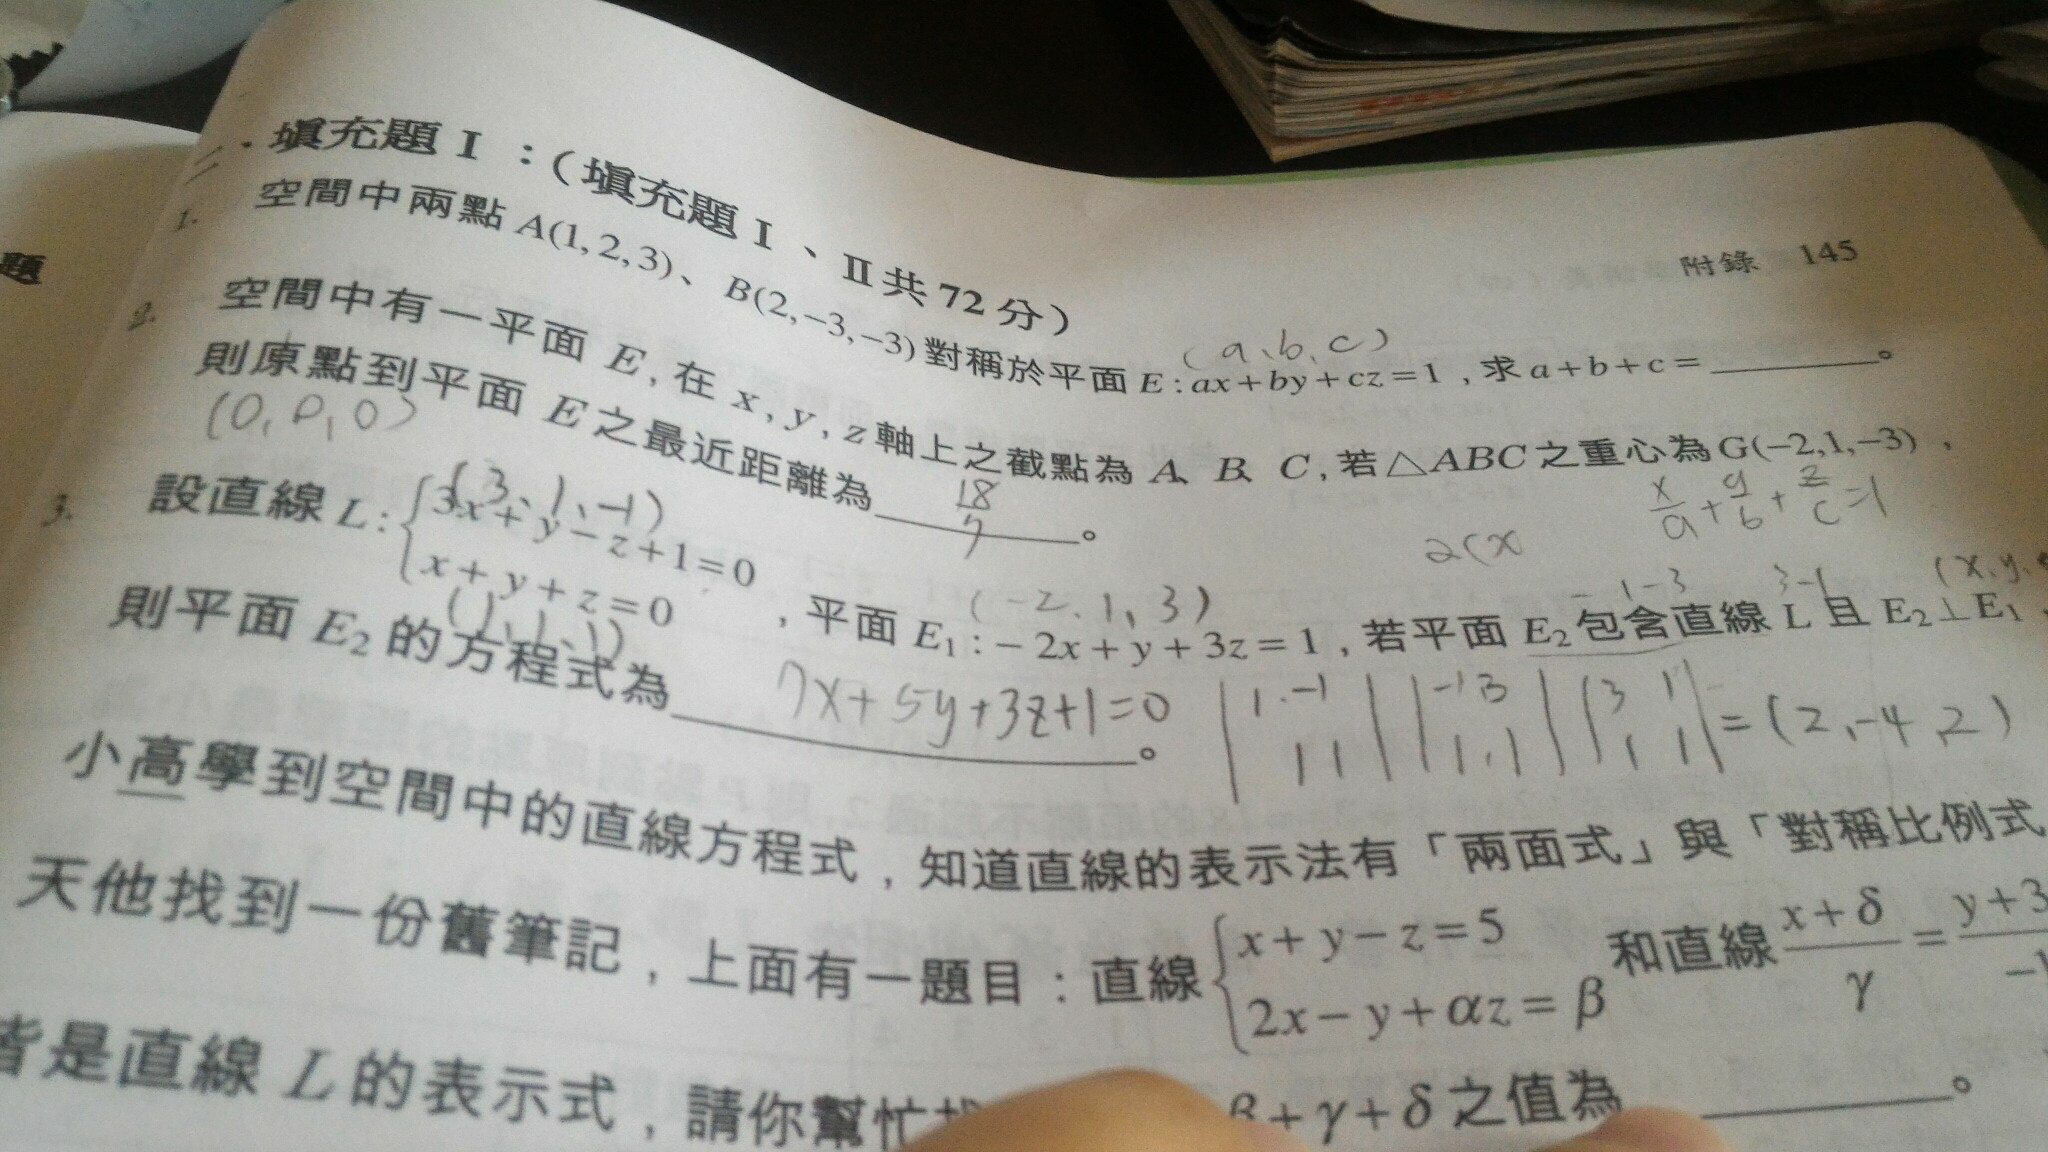 題
附錄 145
二、填充題 I ：（填充題 I 、 II 共 72 分）
1. 空間中兩點 A(1, 2, 3)、B(2, −3, −3) 對稱於平面 E : ax + by + cz = 1 , 求 a + b + c = ________。
(a、b、c)
2. 空間中有一平面 E , 在 x , y , z 軸上之截點為 A、B、C , 若 △ABC 之重心為 G(−2, 1, −3) ,
則原點到平面 E 之最近距離為 18/7 。
(0, 0, 0)
x/a + y/b + z/c = 1
2(x
3. 設直線 L : { 3x + y − z + 1 = 0
x + y + z = 0 , 平面 E₁ : − 2x + y + 3z = 1 , 若平面 E₂ 包含直線 L 且 E₂ ⊥ E₁ ,
(3、1、−1)
(1、1、1)
(−2. 1, 3)
3−1
(x, y,
則平面 E₂ 的方程式為 7x + 5y + 3z + 1 = 0 。
|1 −1| |−1 3| |3 1| = (2, −4, 2)
|1 1| |1 1| |1 1|
小高學到空間中的直線方程式，知道直線的表示法有「兩面式」與「對稱比例式
天他找到一份舊筆記，上面有一題目：直線 { x + y − z = 5
2x − y + αz = β 和直線 (x + δ)/γ = (y + 3)/−1
皆是直線 L 的表示式，請你幫忙 β + γ + δ 之值為 ________。